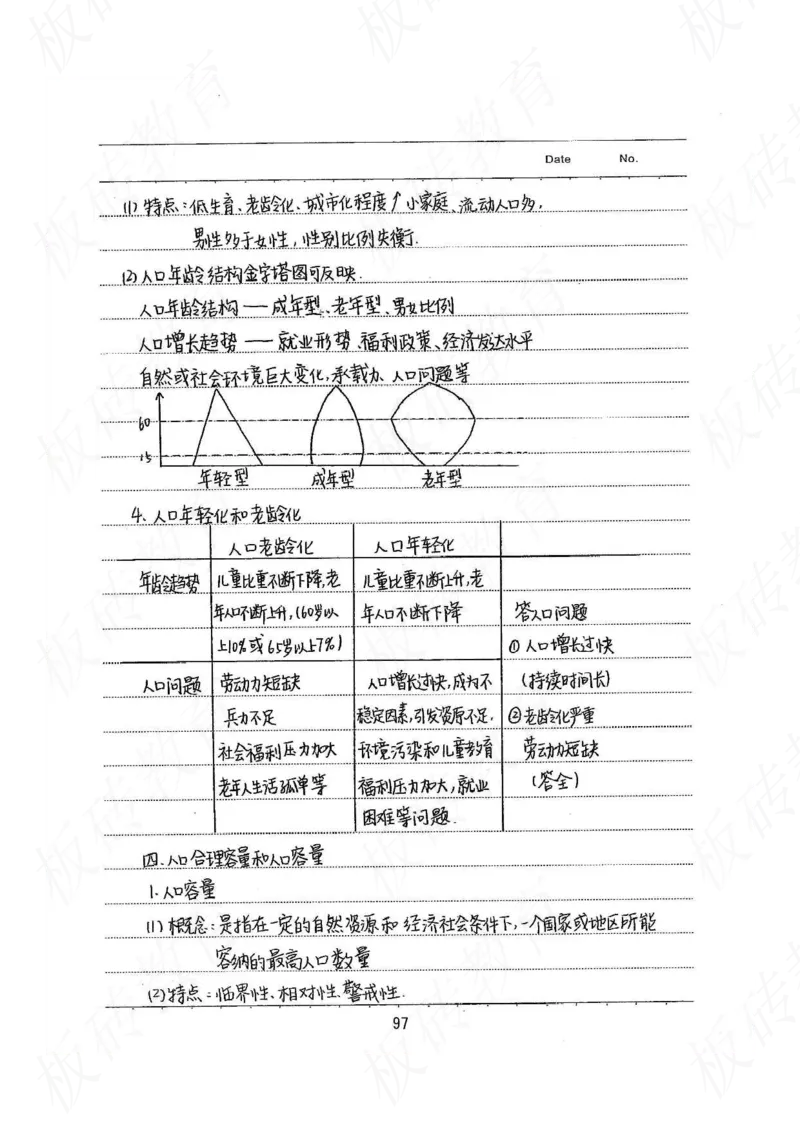 Date No.
(1) 特点:低生育、老龄化、城市化程度↑小家庭、流动人口多,
男性多于女性,性别比例失衡.
(2)人口年龄结构金字塔图可反映.
人口年龄结构——成年型、老年型、男女比例
人口增长趋势——就业形势、福利政策、经济发达水平
自然或社会环境巨大变化,承载力、人口问题等
60
15
年轻型 成年型 老年型
4、人口年轻化和老龄化
人口老龄化 人口年轻化
年龄趋势 儿童比重不断下降,老 儿童比重不断上升,老
年人口不断上升,(60岁以 年人口不断下降 答人口问题
上10%或65岁以上7%) ①人口增长过快
人口问题 劳动力短缺 人口增长过快,成为不 (持续时间长)
兵力不足 稳定因素,引发资源不足, ②老龄化严重
社会福利压力加大 环境污染和儿童教育 劳动力短缺
老年人生活孤单等 福利压力加大,就业 (答全)
困难等问题.
四.人口合理容量和人口容量
1.人口容量
(1)概念:是指在一定的自然资源和经济社会条件下,一个国家或地区所能
容纳的最高人口数量
(2)特点:临界性、相对性、警戒性.
97
板砖教育